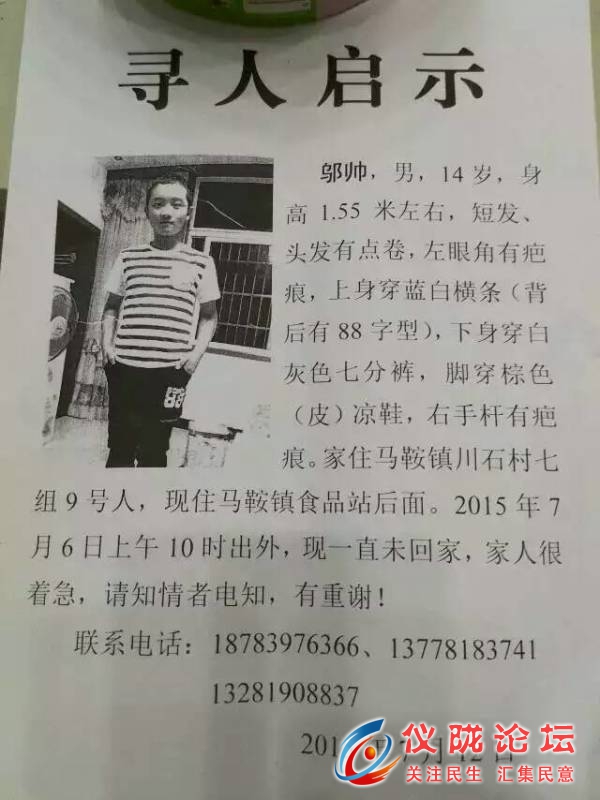 寻人启示
邬帅，男，14岁，身
高1.55 米左右，短发、
头发有点卷，左眼角有疤
痕，上身穿蓝白横条（背
后有88字型），下身穿白
灰色七分裤，脚穿棕色
（皮）凉鞋，右手杆有疤
痕。家住马鞍镇川石村七
组9号人，现住马鞍镇食品站后面。2015年7
月6日上午10时出外，现一直未回家，家人很
着急，请知情者电知，有重谢！
联系电话：18783976366、13778183741
13281908837
仪陇论坛
关注民生 汇集民意